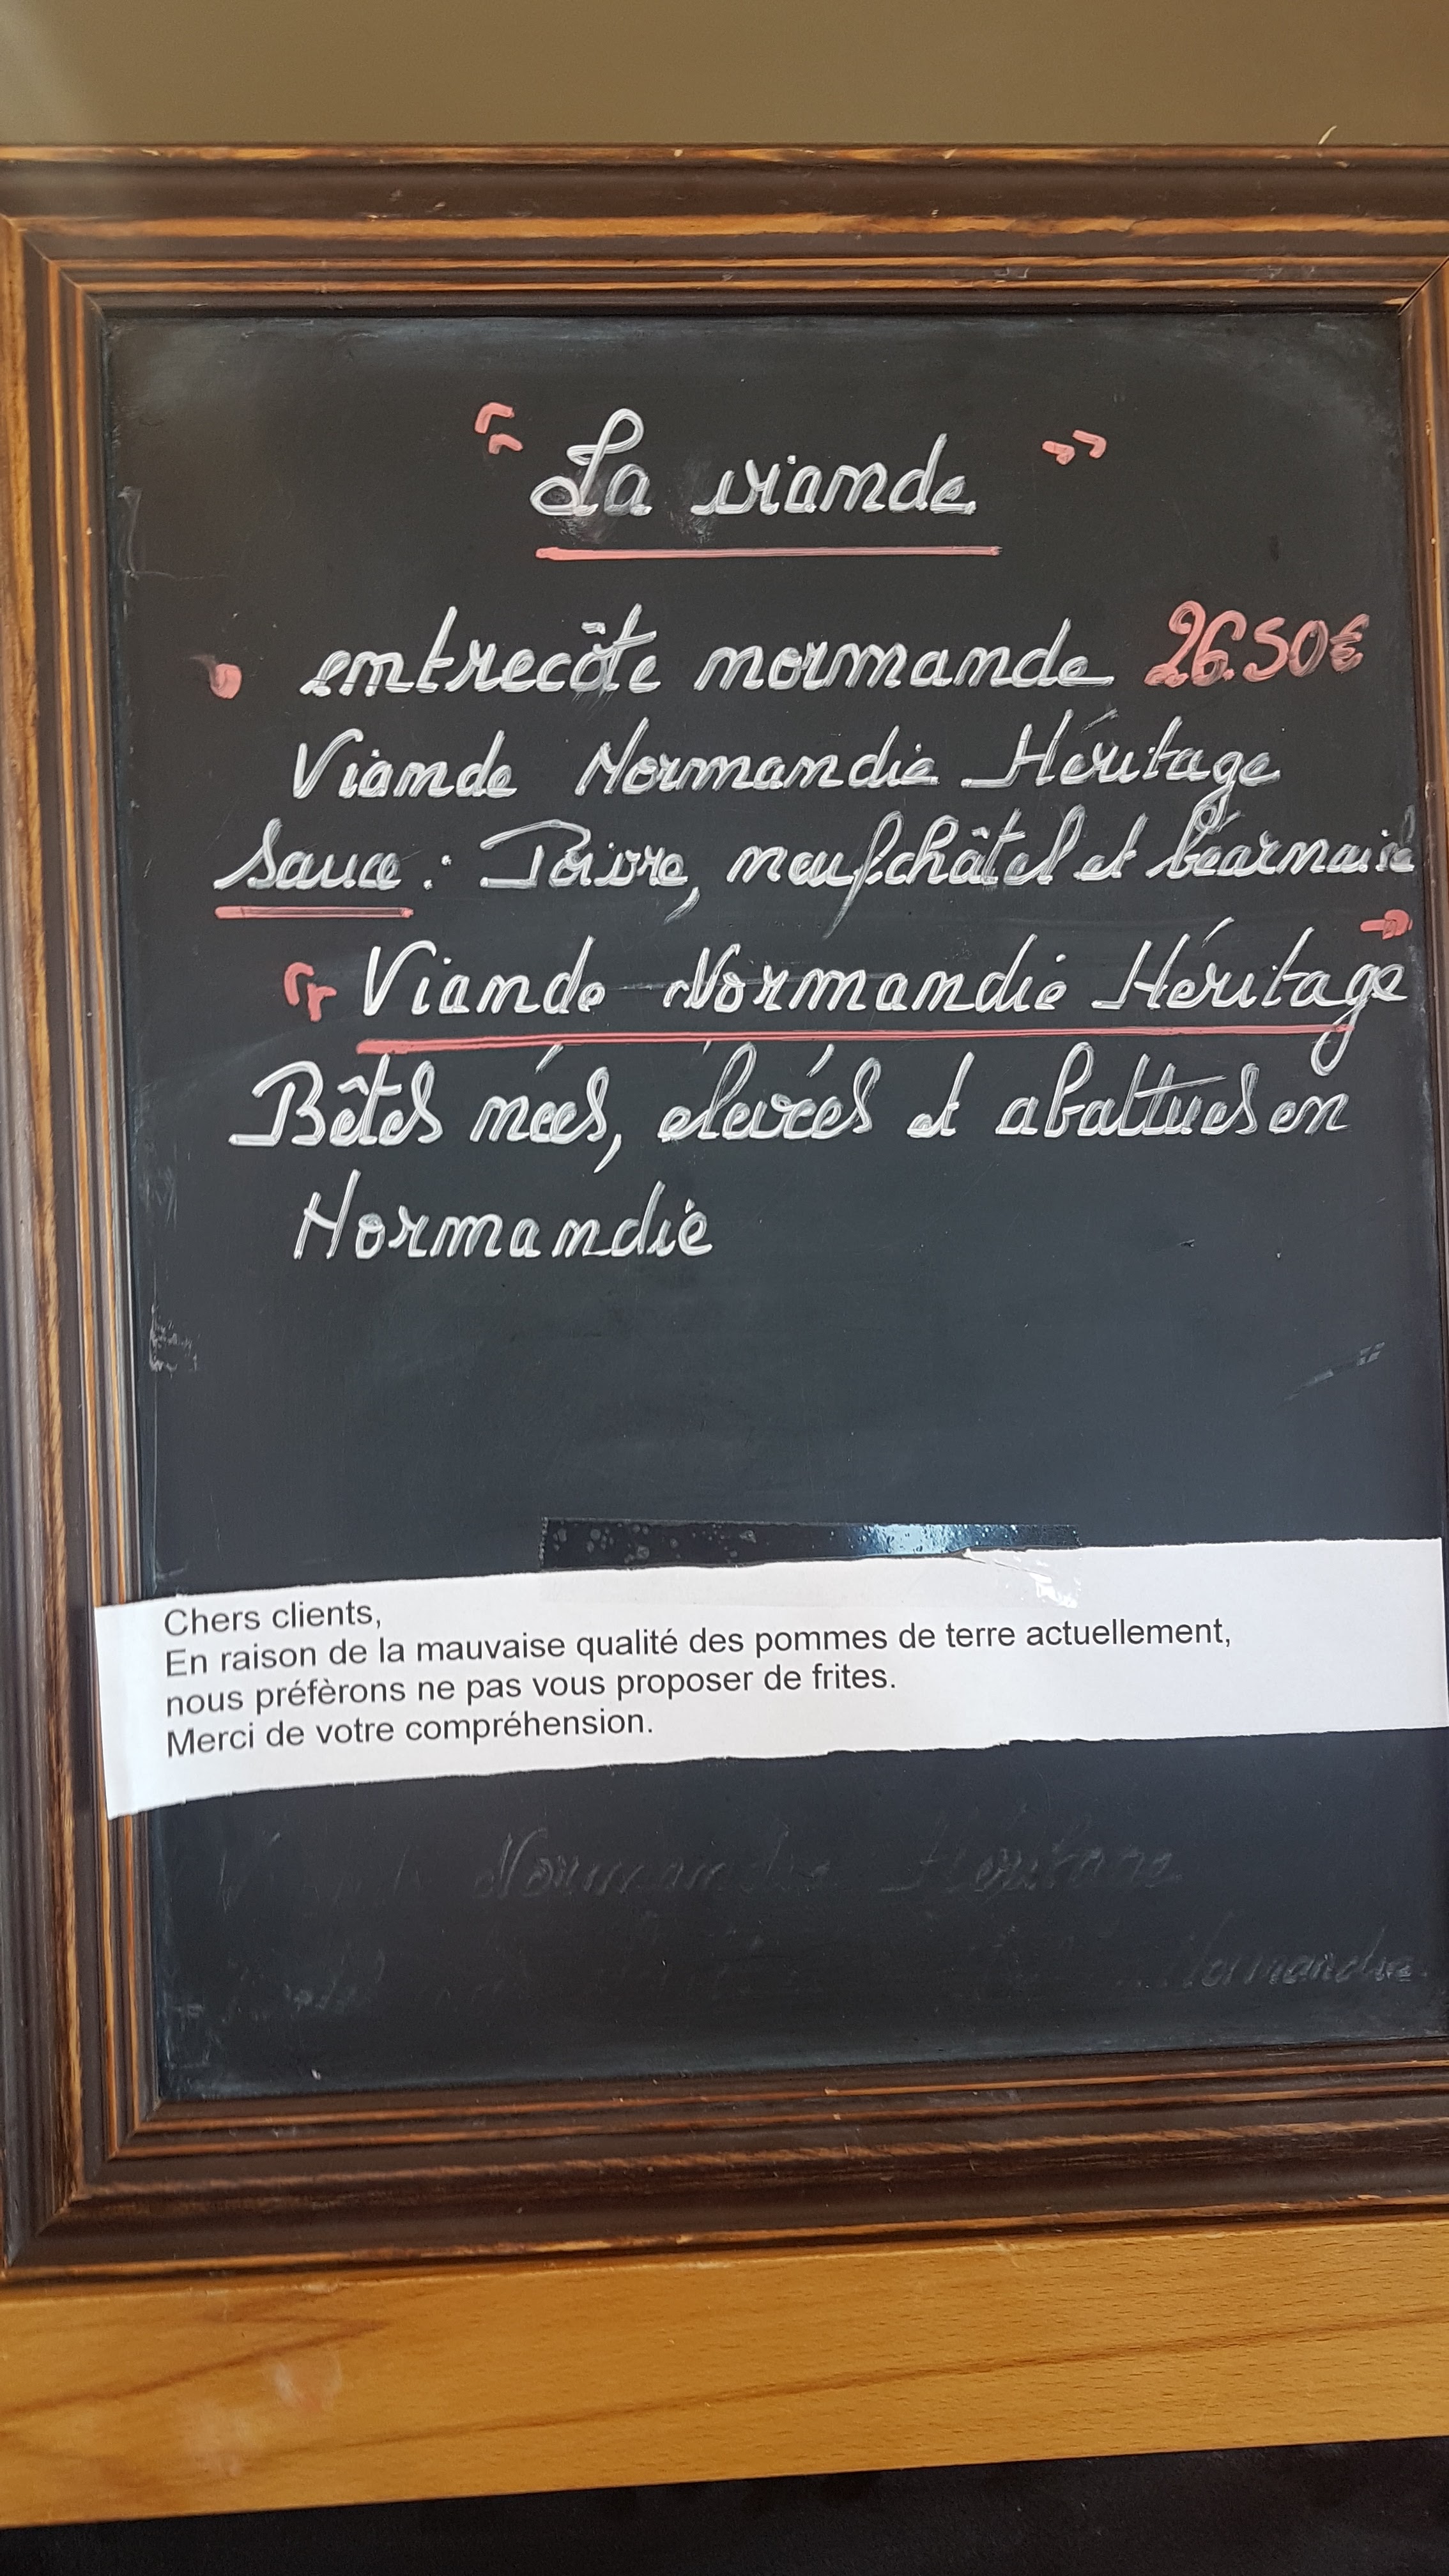 " La viande "
• entrecôte normande 26.50€
Viande Normandie Héritage
Sauce : Poivre, neufchâtel et béarnaise
" Viande Normandie Héritage "
Bêtes nées, élevées et abattues en
Normandie
Chers clients,
En raison de la mauvaise qualité des pommes de terre actuellement,
nous préfèrons ne pas vous proposer de frites.
Merci de votre compréhension.
Normandie Héritage
Normandie